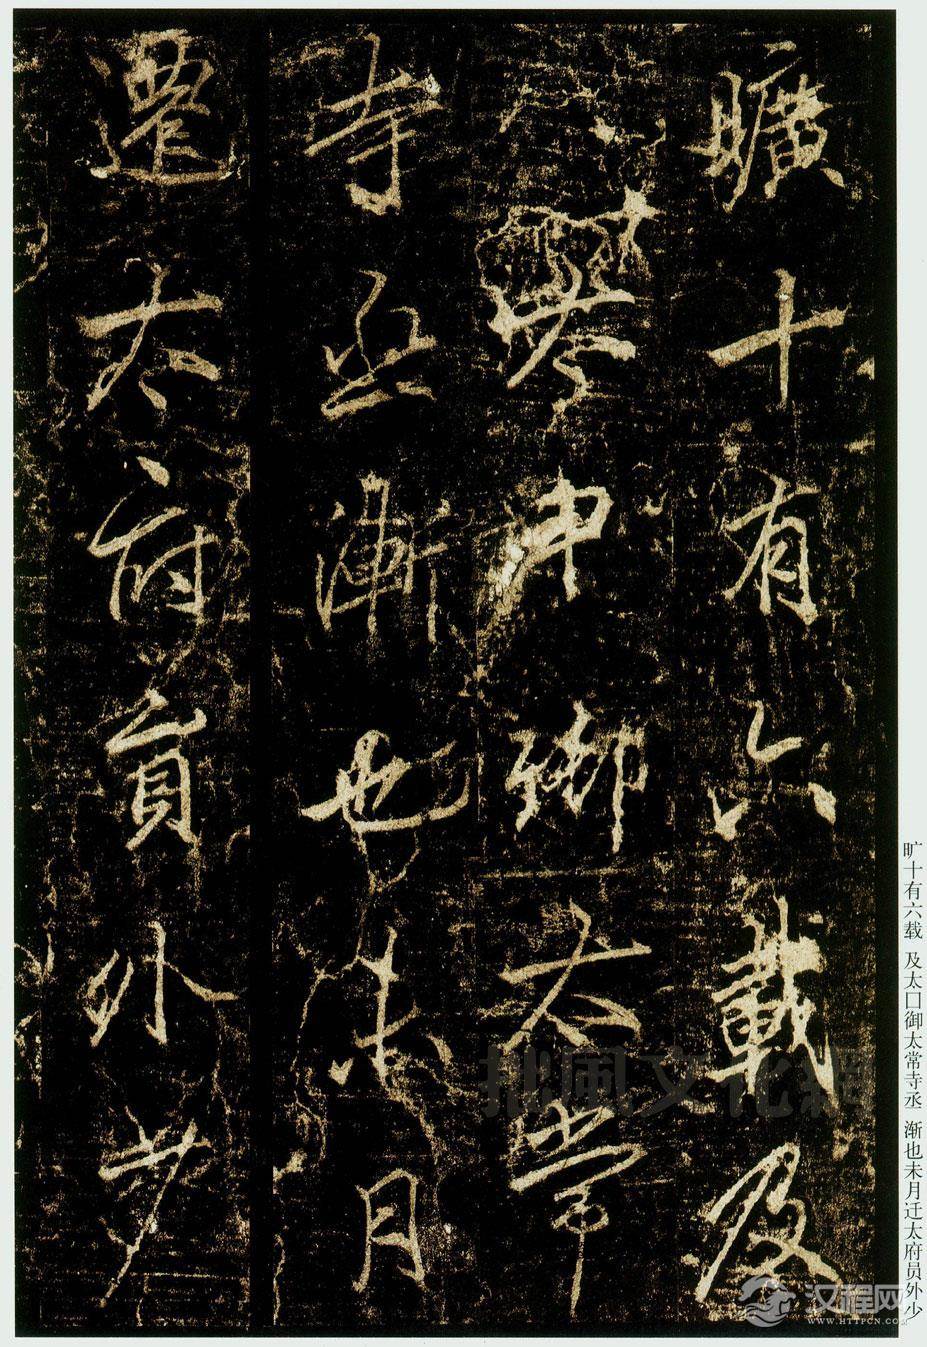 曠十有六載及
中御太常
寺丞漸也未月
遷太府員外少
旷十有六载 及太口御太常寺丞 渐也未月迁太府员外少
拙風文化網
汉程网
WWW.HTTPCN.COM